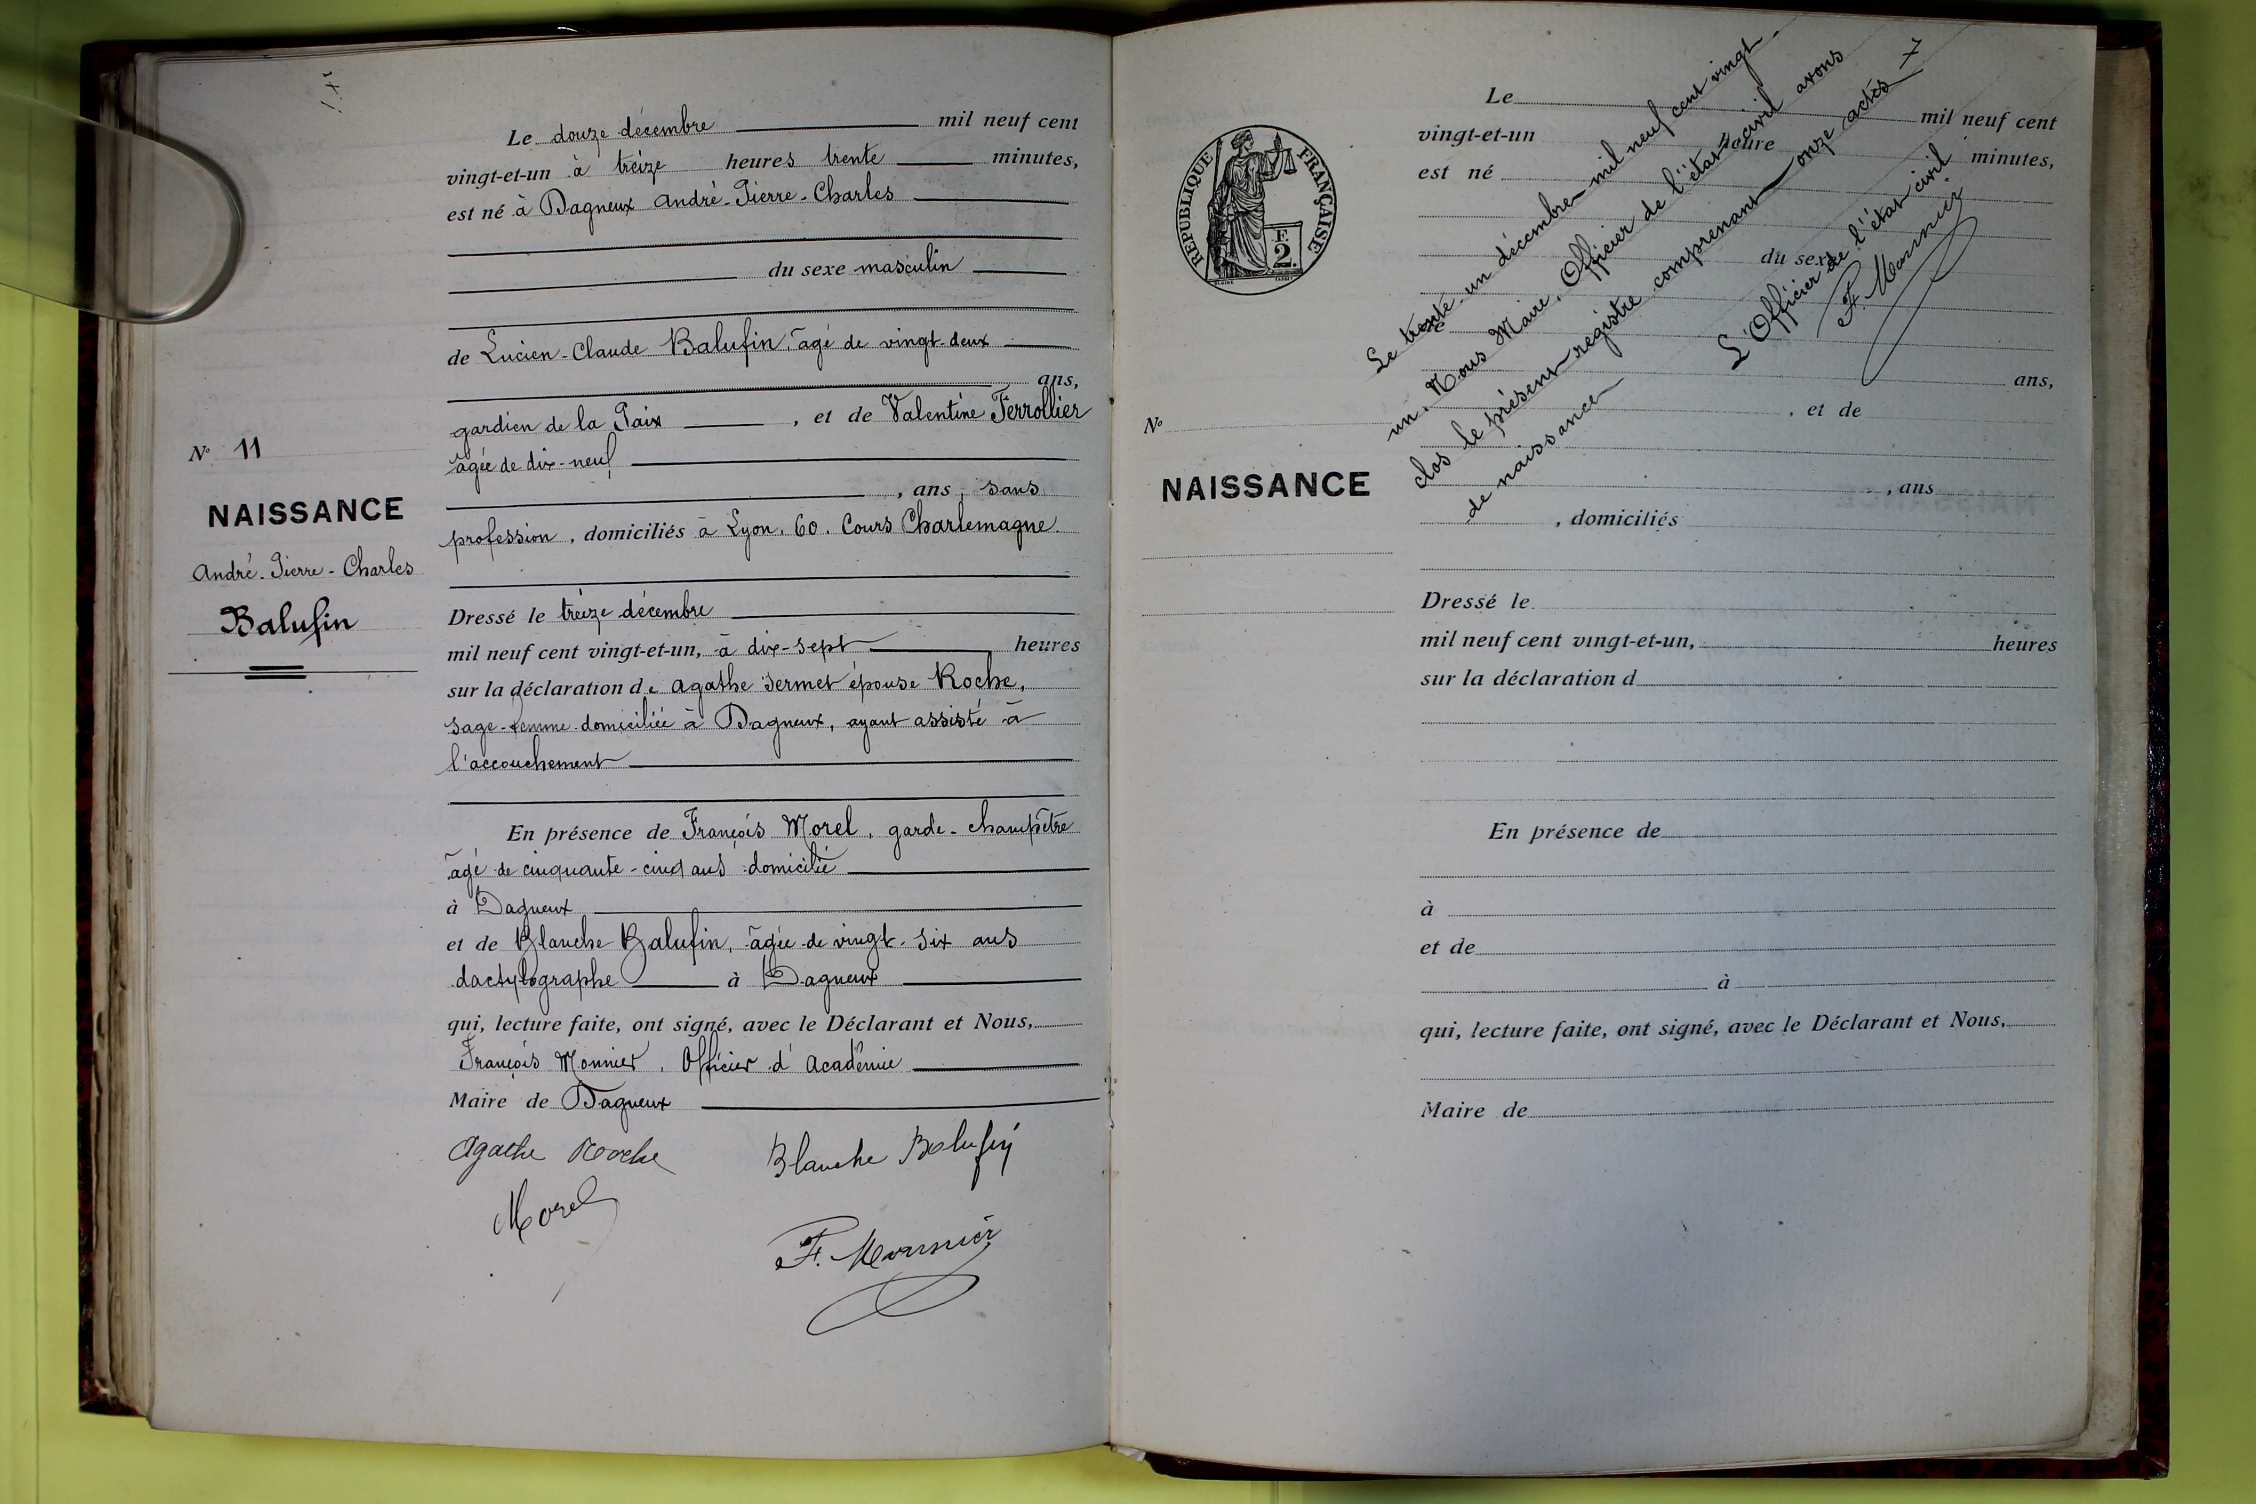 Le douze décembre mil neuf cent
vingt-et-un à treize heures trente minutes,
est né à Dagneux André-Pierre-Charles
du sexe masculin
de Lucien-Claude Balufin, âgé de vingt-deux
ans,
gardien de la Paix , et de Valentine Ferrollier
âgée de dix-neuf
, ans, sans
profession, domiciliés à Lyon, 60. Cours Charlemagne.
N° 11
NAISSANCE
André-Pierre-Charles
Balufin
Dressé le treize décembre
mil neuf cent vingt-et-un, à dix-sept heures
sur la déclaration de Agathe Sermet épouse Roche,
sage-femme domiciliée à Dagneux, ayant assisté à
l'accouchement
En présence de François Morel, garde-champêtre
âgé de cinquante-cinq ans domicilié
à Dagneux
et de Blanche Balufin, âgée de vingt-six ans
dactylographe à Dagneux
qui, lecture faite, ont signé, avec le Déclarant et Nous,
François Monnier, Officier d'Académie
Maire de Dagneux
Agathe Roche
Blanche Balufin
Morel
F. Monnier
REPUBLIQUE FRANÇAISE
F.
2.
Le mil neuf cent
vingt-et-un heure minutes,
est né
du sexe
ans,
, et de
, ans
, domiciliés
Le trente-un décembre mil neuf cent vingt-
un, Nous Maire, Officier de l'état civil avons
clos le présent registre comprenant onze actes
de naissance
L'Officier de l'état civil
F. Monnier
N°
NAISSANCE
Dressé le
mil neuf cent vingt-et-un, heures
sur la déclaration d
En présence de
à
et de
à
qui, lecture faite, ont signé, avec le Déclarant et Nous,
Maire de